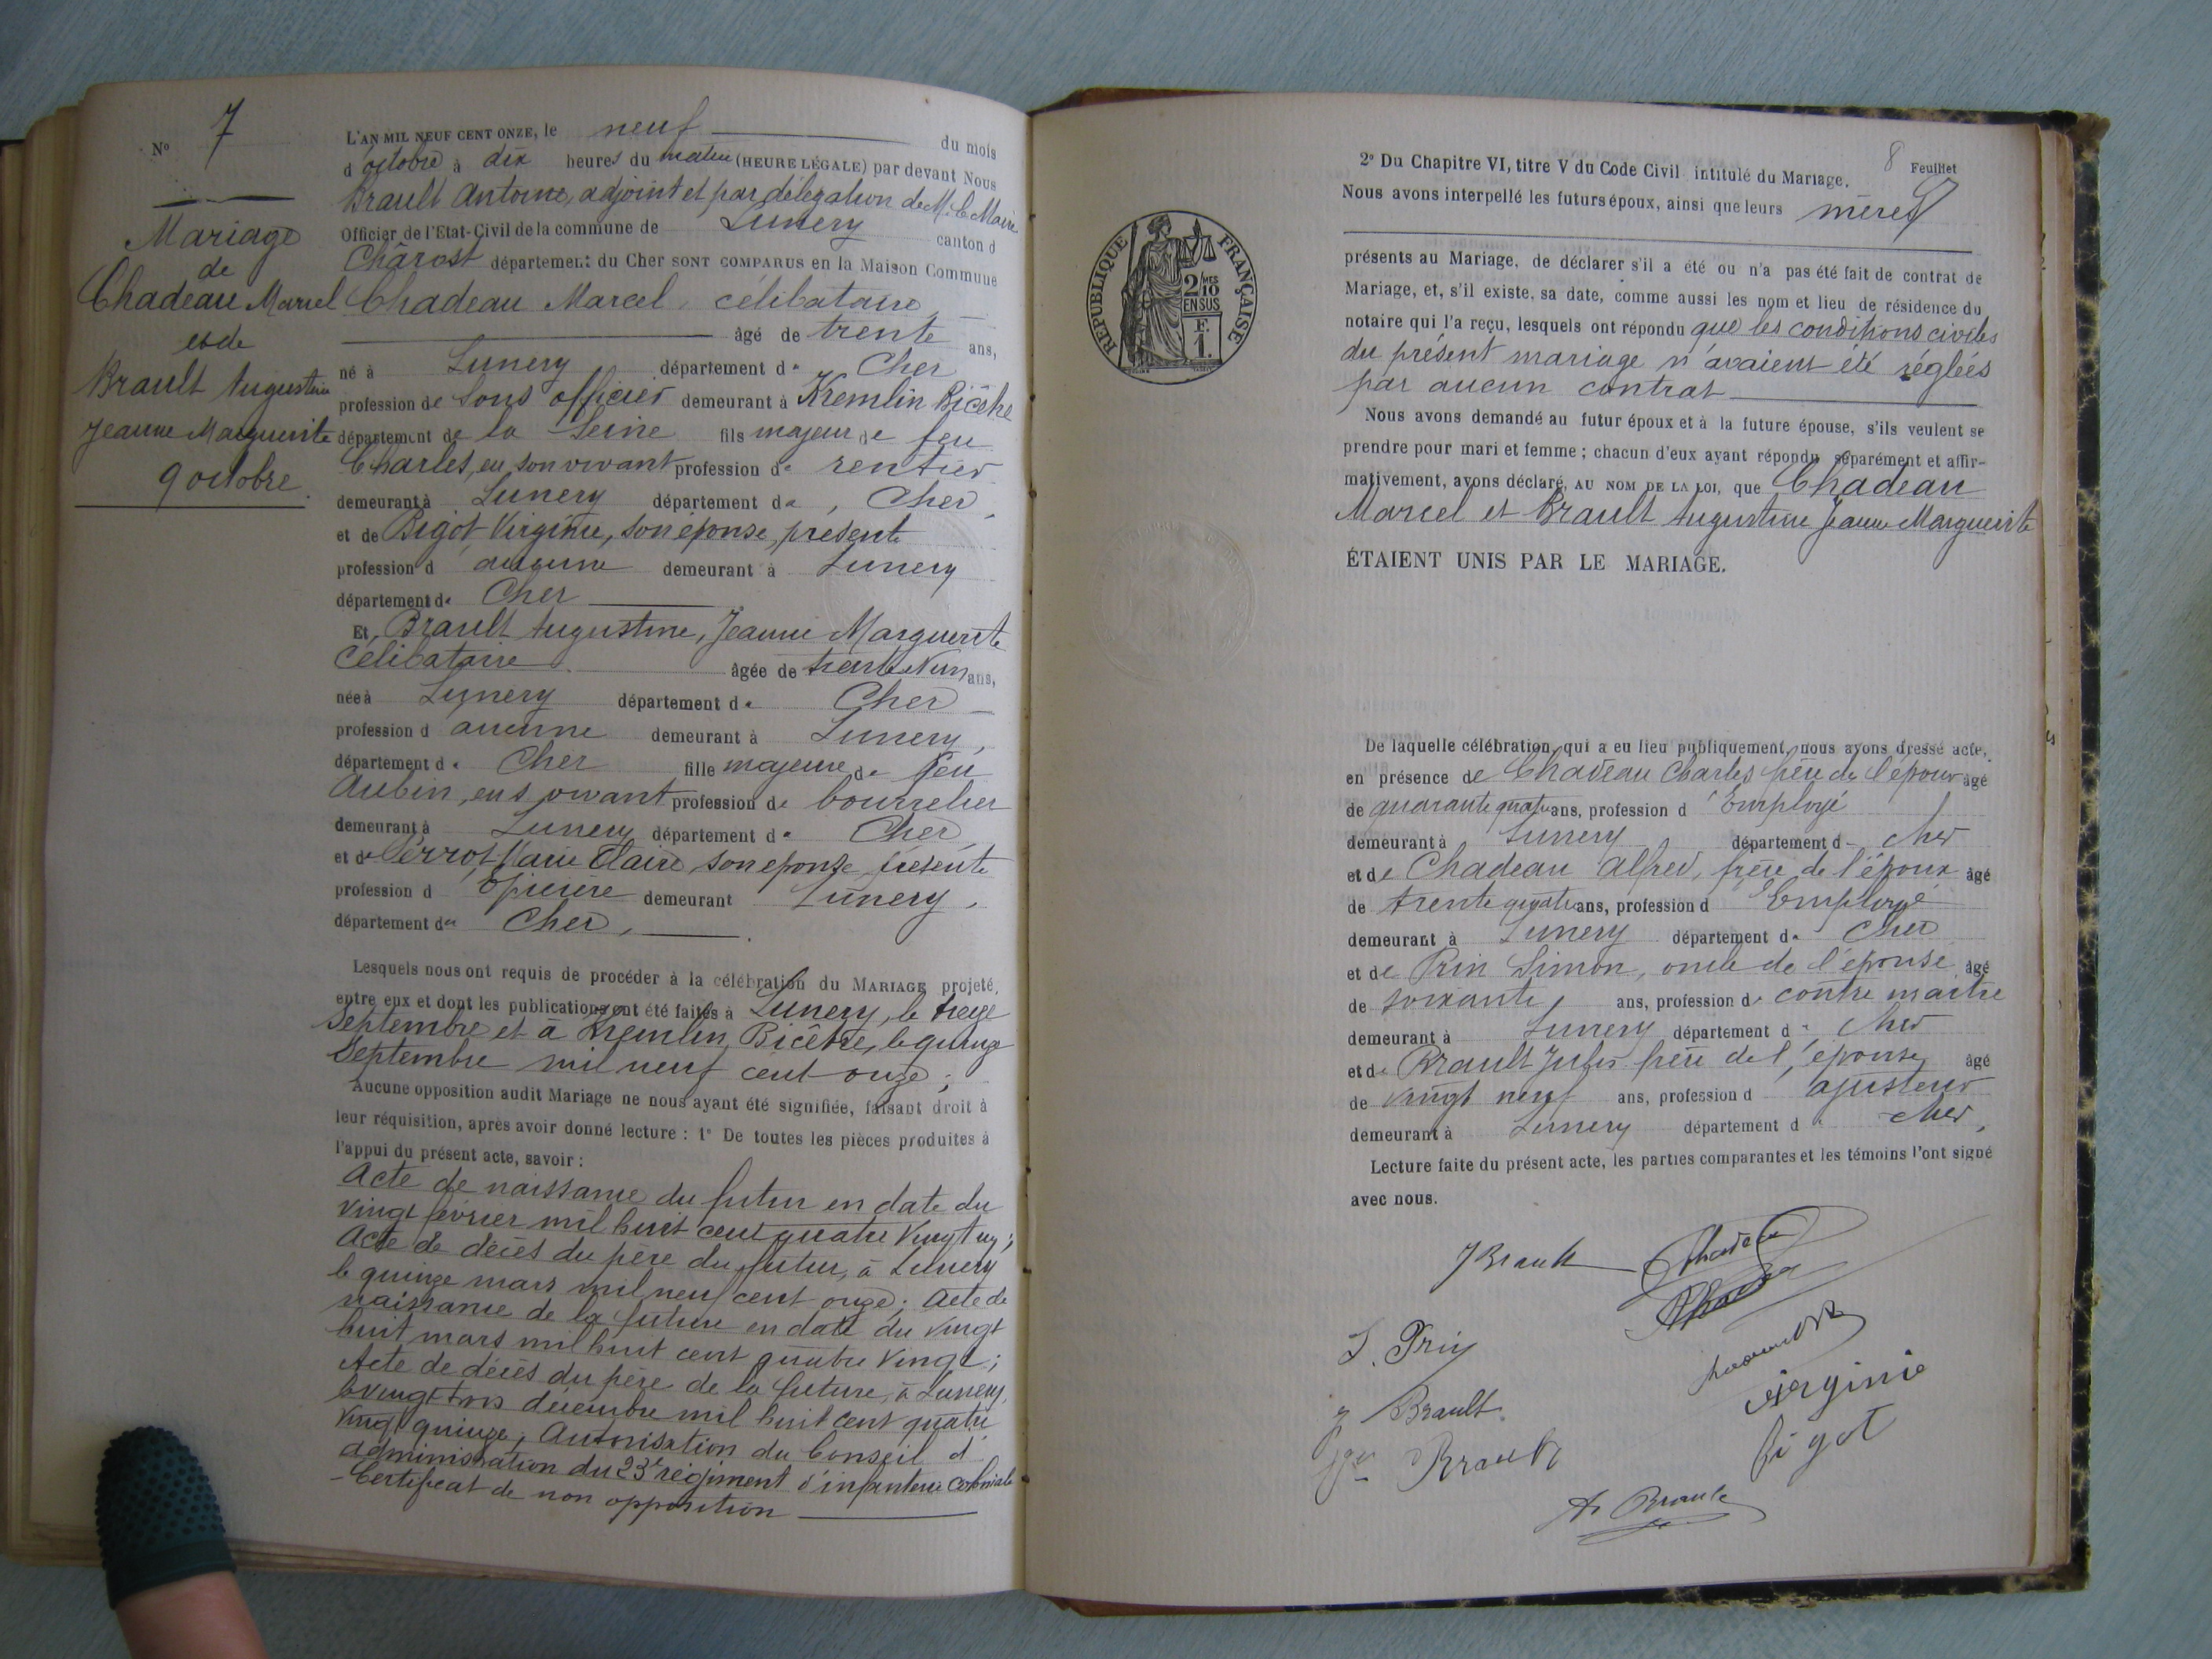 N° 7
Mariage
de
Chadeau Marcel
et de
Brault Augustine
Jeanne Marguerite
9 octobre.
L'AN MIL NEUF CENT ONZE, le neuf du mois
d'octobre à dix heures du matin (HEURE LÉGALE) par devant Nous
Brault Antoine, adjoint et par délégation de M. le Maire
Officier de l'Etat-Civil de la commune de Lunery canton d
Chârost département du Cher SONT COMPARUS en la Maison Commune
Chadeau Marcel, célibataire
âgé de trente ans,
né à Lunery département de Cher
profession de Sous officier demeurant à Kremlin Bicêtre
département de la Seine fils majeur de feu
Charles, en son vivant profession de rentier
demeurant à Lunery département de, Cher,
et de Bigot Virginie, son épouse, présente
profession d aucune demeurant à Lunery
département de Cher
Et Brault Augustine, Jeanne Marguerite
Célibataire âgée de trente un ans,
née à Lunery département de Cher
profession d aucune demeurant à Lunery,
département de Cher fille majeure de feu
Aubin, en s vivant profession de bourrelier
demeurant à Lunery département de Cher
et de Perrot Marie Claire, son épouse, présente
profession d'épicière demeurant Lunery,
département de Cher,
Lesquels nous ont requis de procéder à la célébration du MARIAGE projeté,
entre eux et dont les publications ont été faites à Lunery, le treize
Septembre et à Kremlin Bicêtre, le quinze
Septembre mil neuf cent onze;
Aucune opposition audit Mariage ne nous ayant été signifiée, faisant droit à
leur réquisition, après avoir donné lecture : 1° De toutes les pièces produites à
l'appui du présent acte, savoir :
Acte de naissance du futur en date du
vingt février mil huit cent quatre vingt un;
Acte de décès du père du futur, à Lunery
le quinze mars mil neuf cent onze; Acte de
naissance de la future en date du vingt
huit mars mil huit cent quatre vingt;
Acte de décès du père de la future, à Lunery,
le vingt trois décembre mil huit cent quatre
vingt quinze; Autorisation du Conseil d'
administration du 23e régiment d'infanterie coloniale
- Certificat de non opposition
8 Feuillet
2° Du Chapitre VI, titre V du Code Civil intitulé du Mariage.
Nous avons interpellé les futurs époux, ainsi que leurs mères
RÉPUBLIQUE FRANÇAISE
2/10 MES
EN SUS
F.
1.
présents au Mariage, de déclarer s'il a été ou n'a pas été fait de contrat de
Mariage, et, s'il existe, sa date, comme aussi les nom et lieu de résidence du
notaire qui l'a reçu, lesquels ont répondu que les conditions civiles
du présent mariage n'avaient été réglées
par aucun contrat
Nous avons demandé au futur époux et à la future épouse, s'ils veulent se
prendre pour mari et femme ; chacun d'eux ayant répondu séparément et affir-
mativement, avons déclaré, AU NOM DE LA LOI, que Chadeau
Marcel et Brault Augustine Jeanne Marguerite
ÉTAIENT UNIS PAR LE MARIAGE.
De laquelle célébration, qui a eu lieu publiquement, nous avons dressé acte,
en présence de Chadeau Charles frère de l'époux âgé
de quarante quatre ans, profession d'Employé
demeurant à Lunery département d Cher
et de Chadeau Alfred, frère de l'époux âgé
de trente quatre ans, profession d'Employé
demeurant à Lunery département de Cher
et de Prin Simon, oncle de l'épouse âgé
de soixante, ans, profession de contre maître
demeurant à Lunery département d Cher
et de Brault Jules frère de l'épouse âgé
de vingt neuf ans, profession d ajusteur
demeurant à Lunery département d Cher,
Lecture faite du présent acte, les parties comparantes et les témoins l'ont signé
avec nous.
J Brault Chadeau
S. Prin
Virginie
Brault Bigot
Brault
A. Brault